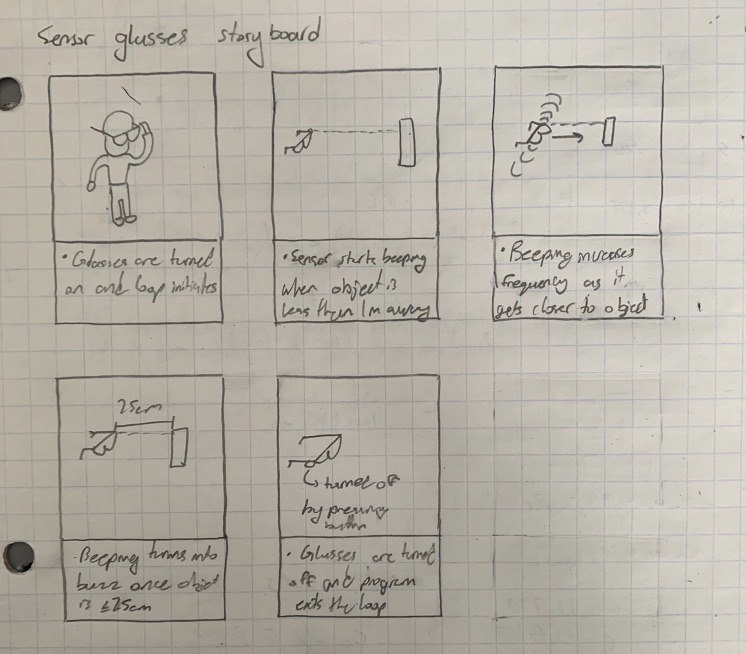 Sensor glasses storyboard
• Glasses are turned
on and loop initiates
• Sensor starts beeping
when object is
less than 1m away
• Beeping increases
frequency as it
gets closer to object
25cm
• Beeping turns into
buzz once object
is ≤25cm
turned off
by pressing
button
• Glasses are turned
off and program
exits the loop